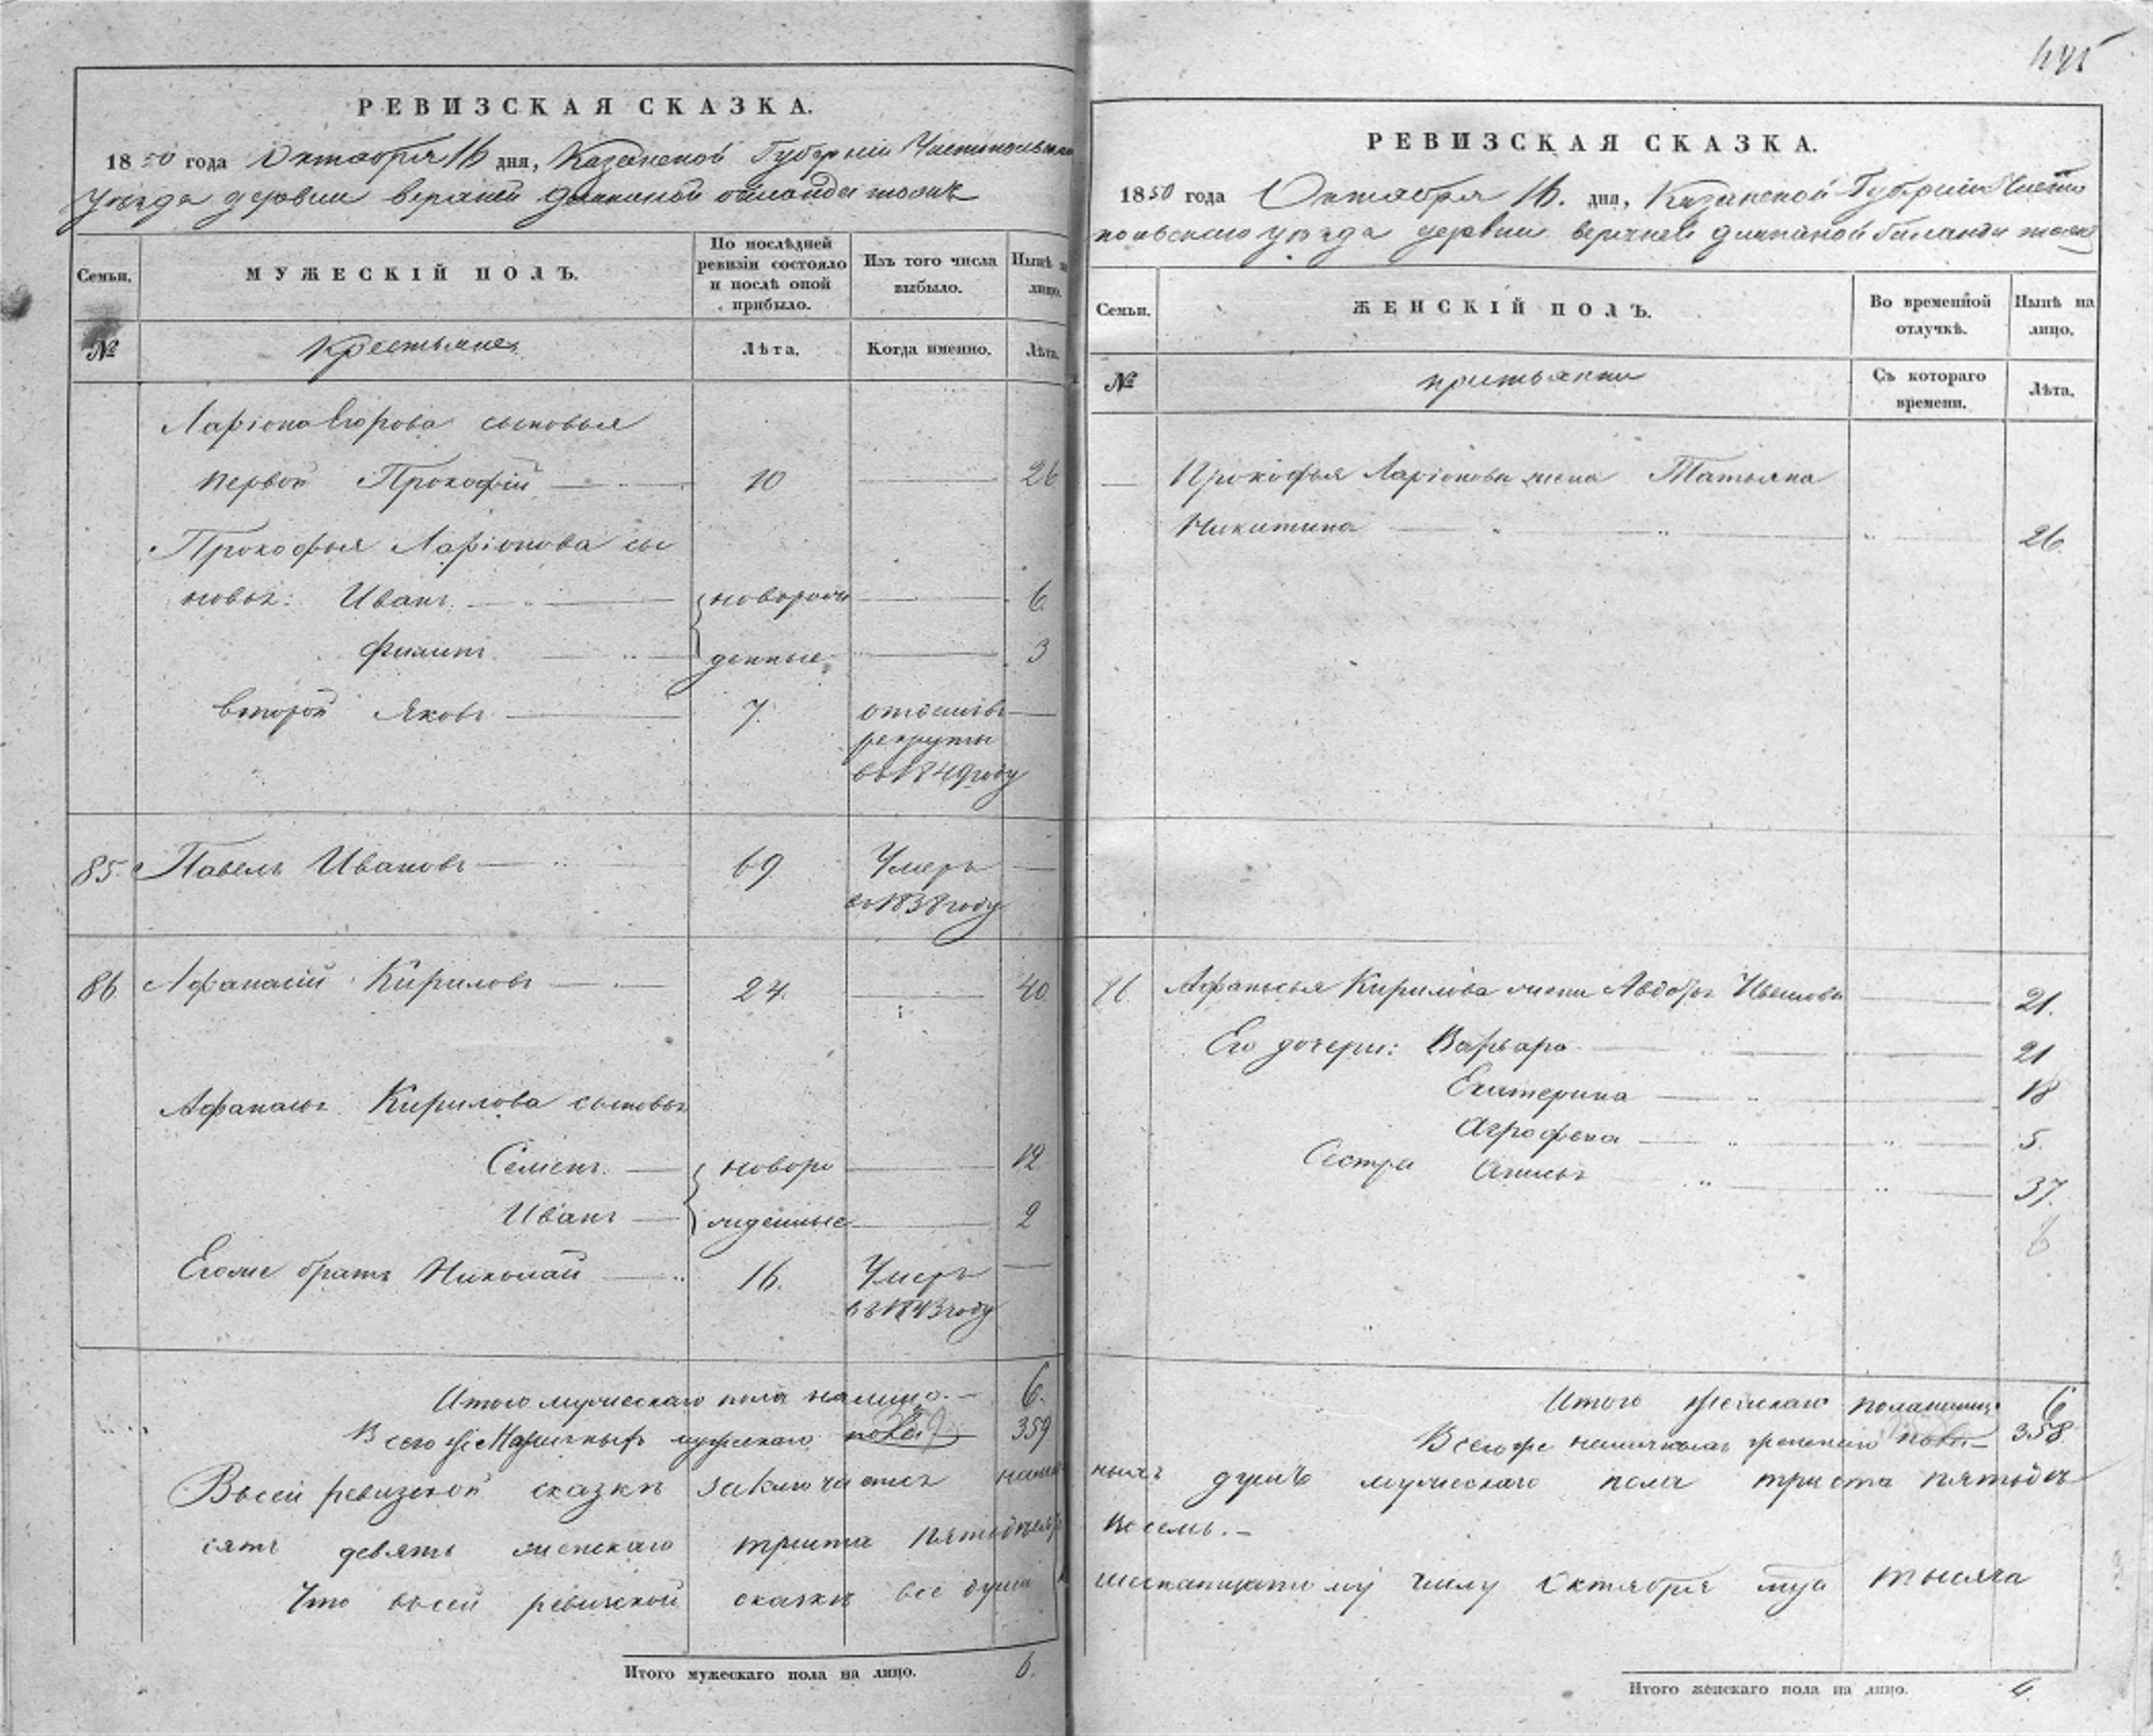 РЕВИЗСКАЯ СКАЗКА.
1850 года Октября 16 дня, Казанской Губерніи Чистопольскаго
уѣзда деревни верхней
Семьи. МУЖЕСКІЙ ПОЛЪ. По послѣдней ревизіи состояло и послѣ оной прибыло. Изъ того числа выбыло. Нынѣ на лицо.
№ Крестьяне Лѣта. Когда именно. Лѣта.
Ларіона Егорова сыновья
первой Прокофій 10 26
Прокофья Ларіонова сы
новья: Иванъ новорож 6
Филипъ денные 3
второй Яковъ 7. отданъ въ
рекруты
въ 1849 году
85. Павелъ Ивановъ 69 Умеръ
въ 1838 году
86 Афанасій Кириловъ 24. 40
Афанасья Кирилова сыновья
Семенъ новоро 12
Иванъ жденные 2
Егоже братъ Николай 16. Умеръ
въ 1843 году
Итого мужескаго пола налицо. 6.
Всего же Наличныхъ мужескаго пола 359
Въ сей ревизской сказкѣ заключается налич
сятъ девять женскаго триста пятьдесятъ
Что въ сей ревизской сказкѣ все души
Итого мужескаго пола на лицо. 6.
445
РЕВИЗСКАЯ СКАЗКА.
1850 года Октября 16. дня, Казанской Губерніи Чисто
польскаго уѣзда деревни верхней
Семьи. ЖЕНСКІЙ ПОЛЪ. Во временной отлучкѣ. Нынѣ на лицо.
№ крестьянки Съ котораго времени. Лѣта.
Прокофья Ларіонова жена Татьяна
Никитина 26
86 Афанасья Кирилова жена Авдотья Иванова 21.
Его дочери: Варвара 21
Екатерина 18
Агрофена 5.
Сестра 37.
6
Итого женскаго пола налицо 6
Всего же наличныхъ женскаго пола 358
ныхъ душъ мужескаго пола триста пятьде
восемь.
шестнатцатому числу Октября мца тысяча
Итого женскаго пола на лицо. 6.